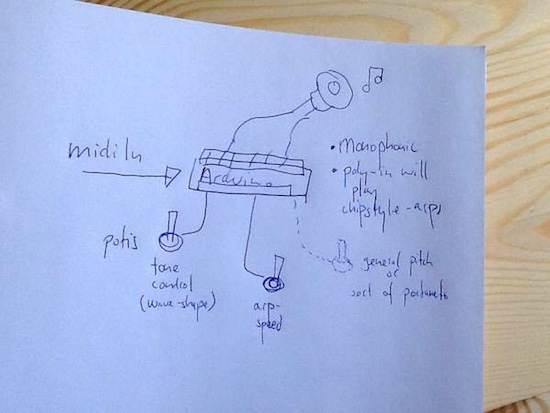 midi In
Arduino
• Monophonic
• poly-in will
play
chipstyle-arps
potis
tone
control
(wave-shape)
arp-
speed
general pitch
or
sort of portamento